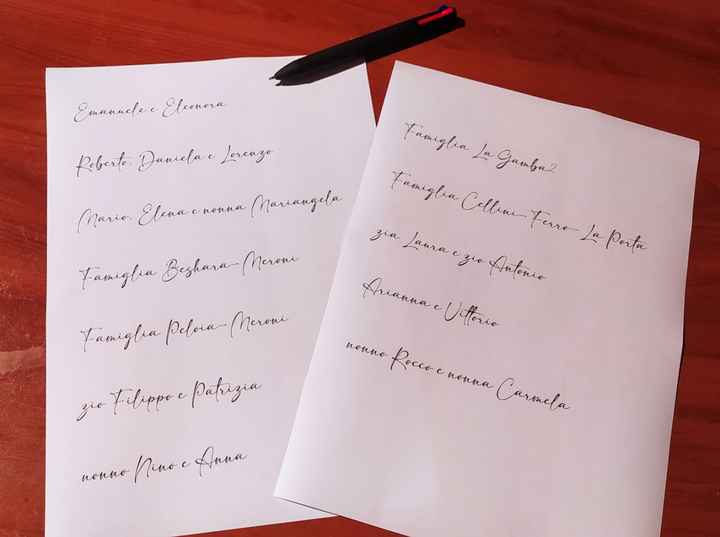 Emanuele e Eleonora
Roberto, Daniela e Lorenzo
Mario, Elena e nonna Mariangela
Famiglia Beshara-Meroni
Famiglia Peloia-Meroni
zio Filippo e Patrizia
nonno Nino e Anna
Famiglia La Gamba
Famiglia Cellini-Ferro-La Porta
zia Laura e zio Antonio
Arianna e Vittorio
nonno Rocco e nonna Carmela